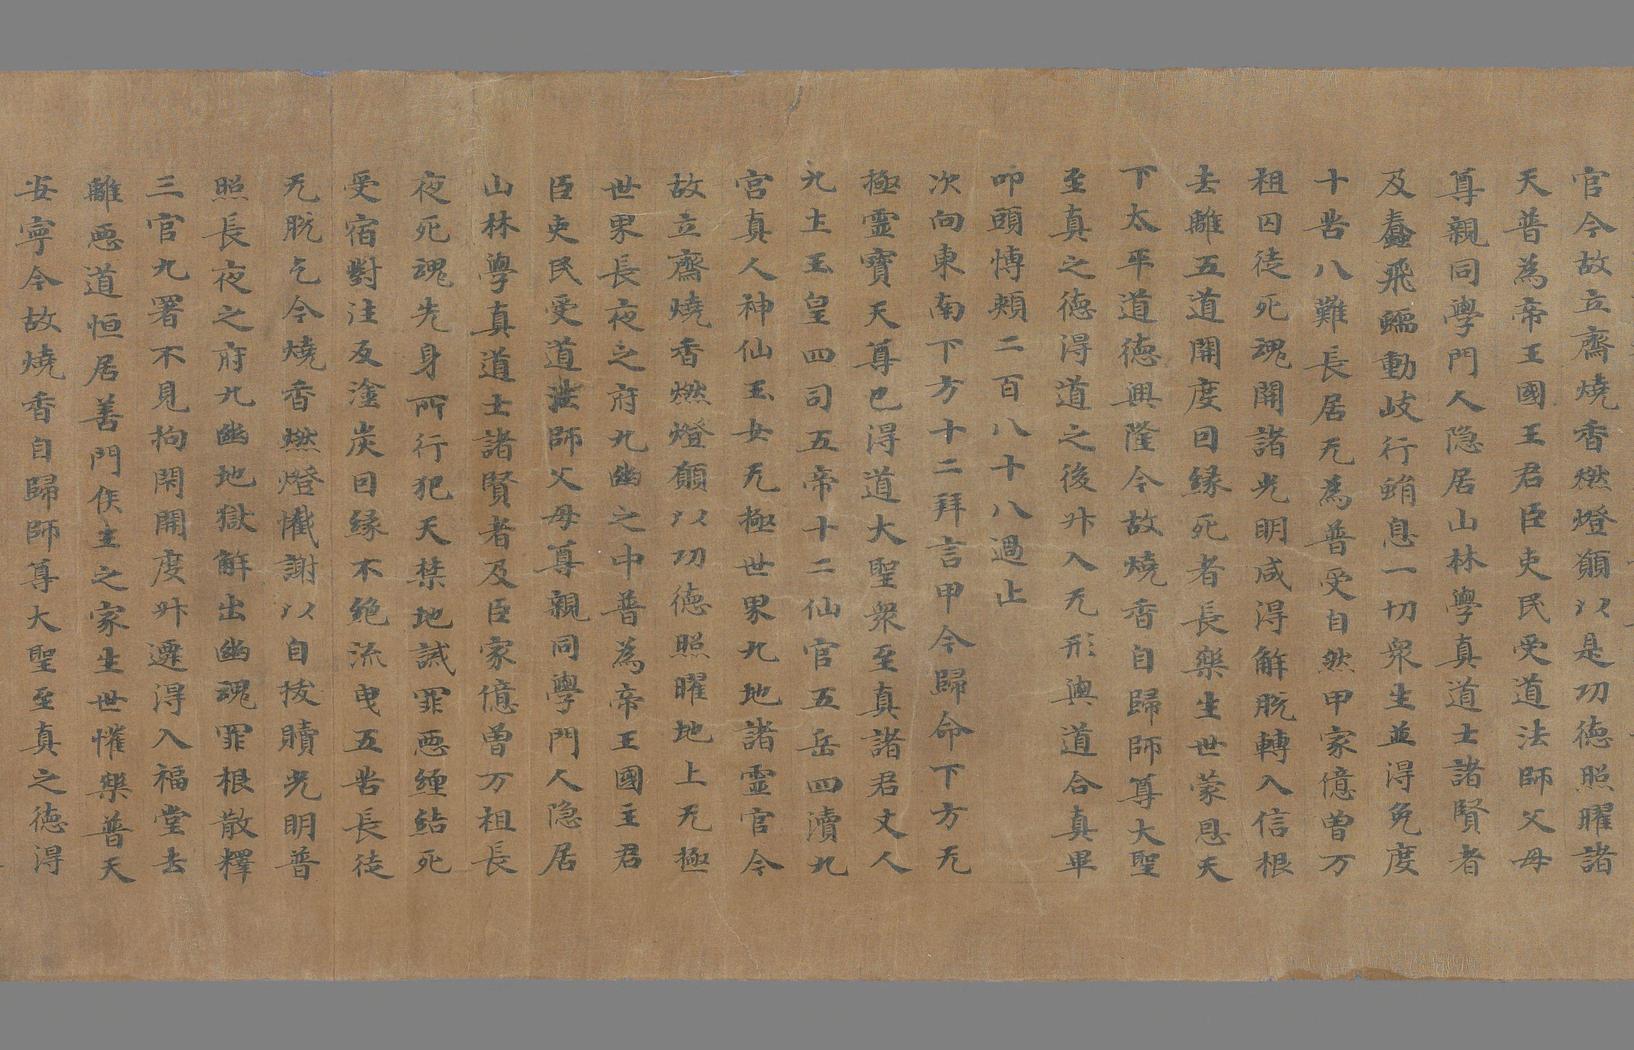 官今故立齋燒香燃燈願以是功德照曜諸
天普為帝王國王君臣吏民受道法師父母
尊親同學門人隱居山林學真道士諸賢者
及蠢飛蠕動岐行蜎息一切衆生並得免度
十苦八難長居无為普受自然甲家億曾万
祖囚徒死魂開諸光明咸得解脫轉入信根
去離五道開度因緣死者長樂生世蒙恩天
下太平道德興隆今故燒香自歸師尊大聖
至真之德得道之後升入无形與道合真畢
叩頭愽頰二百八十八過止
次向東南下方十二拜言甲今歸命下方无
極靈寶天尊已得道大聖衆至真諸君丈人
九土土皇四司五帝十二仙官五岳四瀆九
宮真人神仙玉女无極世界九地諸靈官今
故立齋燒香燃燈願以功德照曜地上无極
世界長夜之府九幽之中普為帝王國主君
臣吏民受道法師父母尊親同學門人隱居
山林學真道士諸賢者及臣家億曾万祖長
夜死魂先身所行犯天禁地誡罪惡纏結死
受宿對注反塗炭因緣不絕流曳五苦長徒
无脫乞今燒香燃燈懴謝以自拔贖光明普
照長夜之府九幽地獄解出幽魂罪根散釋
三官九署不見拘閉開度升遷得入福堂去
離惡道恒居善門侯王之家生世懽樂普天
安寧今故燒香自歸師尊大聖至真之德得